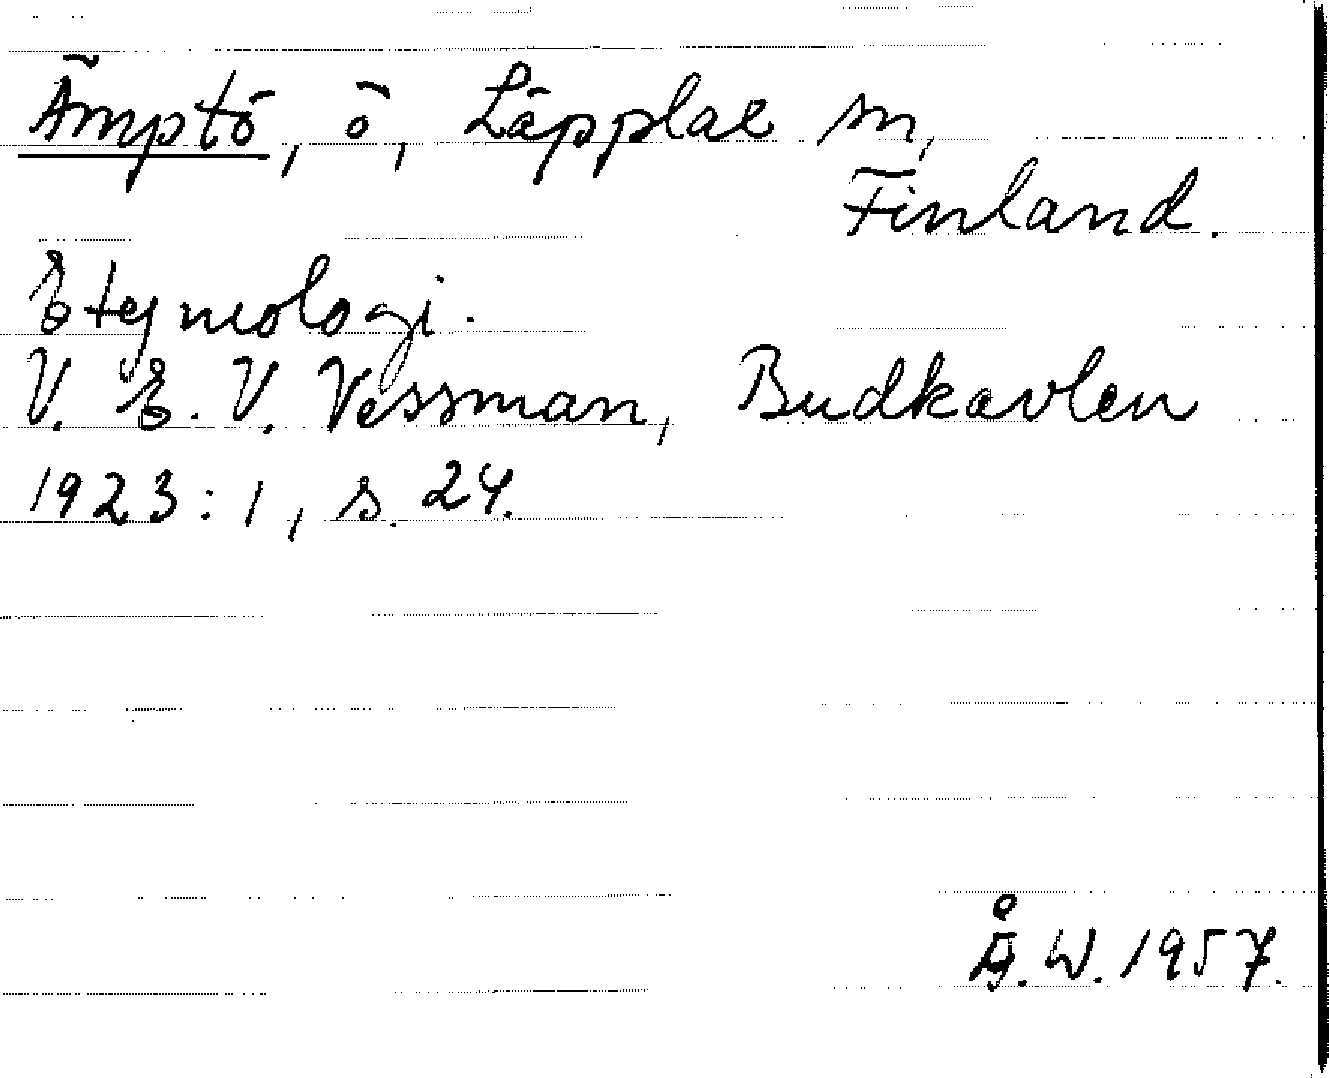 Ämptö, ö, Läpplax sn,
Finland.
Etymologi.
V. E. V. Wessman, Budkavlen
1923:1, s. 24.
Å. W. 1957.